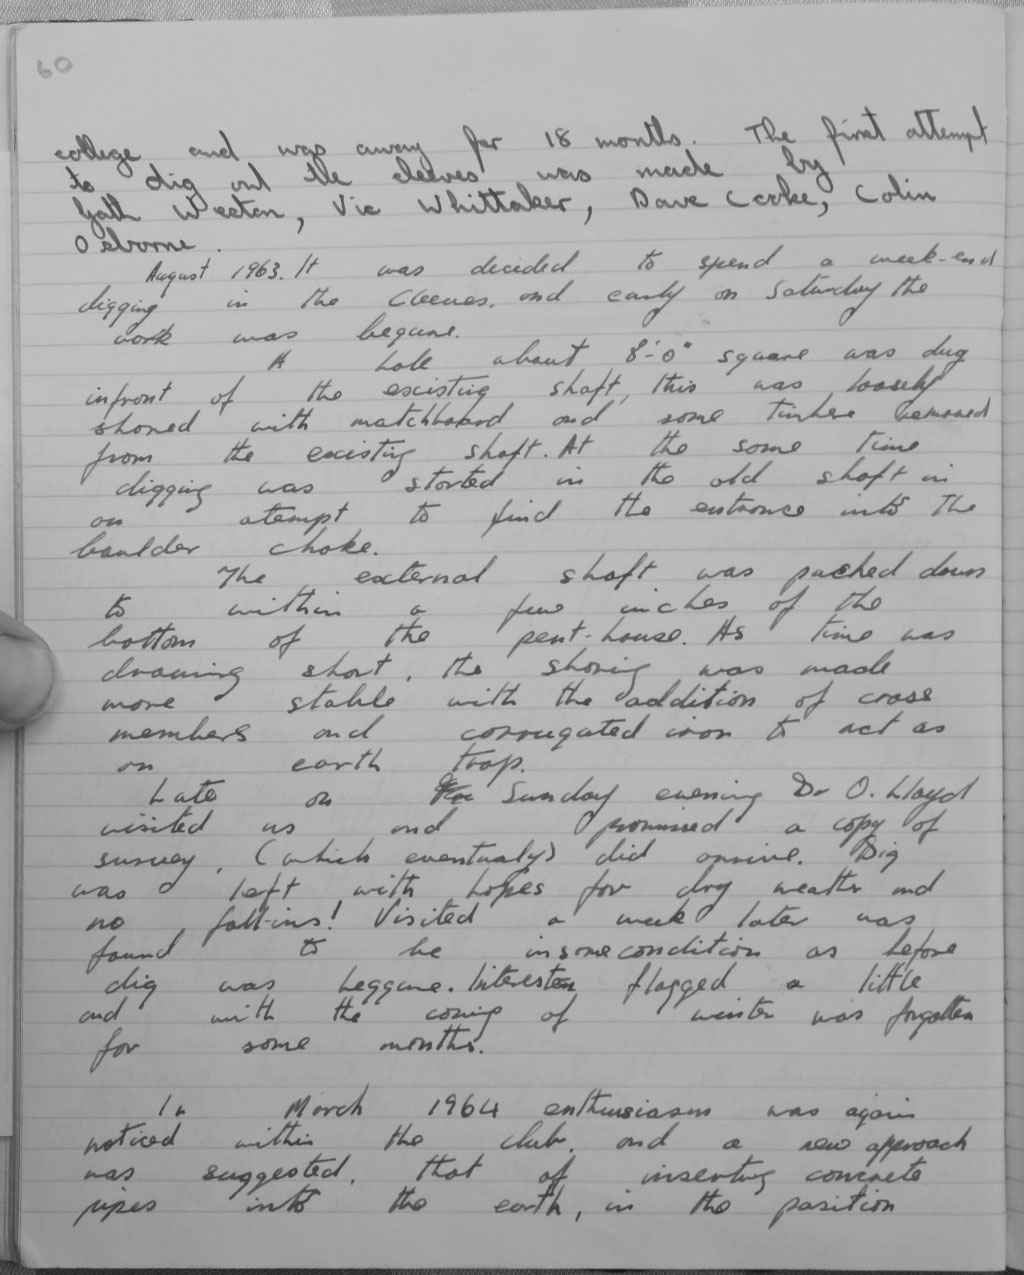 60
college and was away for 18 months. The first attempt
to dig out the cleeves was made by
Weeton, Vic Whittaker, Dave Cooke, Colin
Osborne.
August 1963. It was decided to spend a week-end
digging in the Cleeves. and early on Saturday the
work was begune.
A hole about 8'-0" square was dug
infront of the excisting shaft, this was loosely
shored with matchboard and some timbere removed
from the excisting shaft. At the some time
digging was started in the old shaft in
an atempt to find the entrance into the
boulder choke.
The external shaft was pushed down
to within a few inches of the
bottom of the pent-house. As time was
drawing short, the shoring was made
more stable with the addition of cross
members and corrugated iron to act as
an earth trap.
Late on Sunday evening Dr O. Lloyd
visited us and promissed a copy of
survey, (which eventualy) did arrive. Dig
was left with hopes for dry weather and
no fall-ins! Visited a week later was
found to be in some condition as before
dig was beggune. Interesten flagged a little
and with the coming of winter was forgotten
for some months.
In March 1964 enthusiasm was again
noticed within the club, and a new approach
was suggested, that of inserting concrete
pipes into the earth, in the position